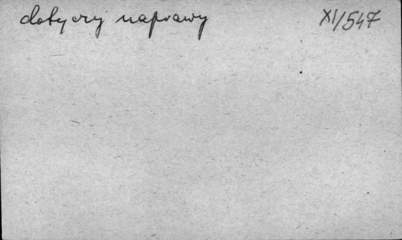 dotyczy naprawy XI/547